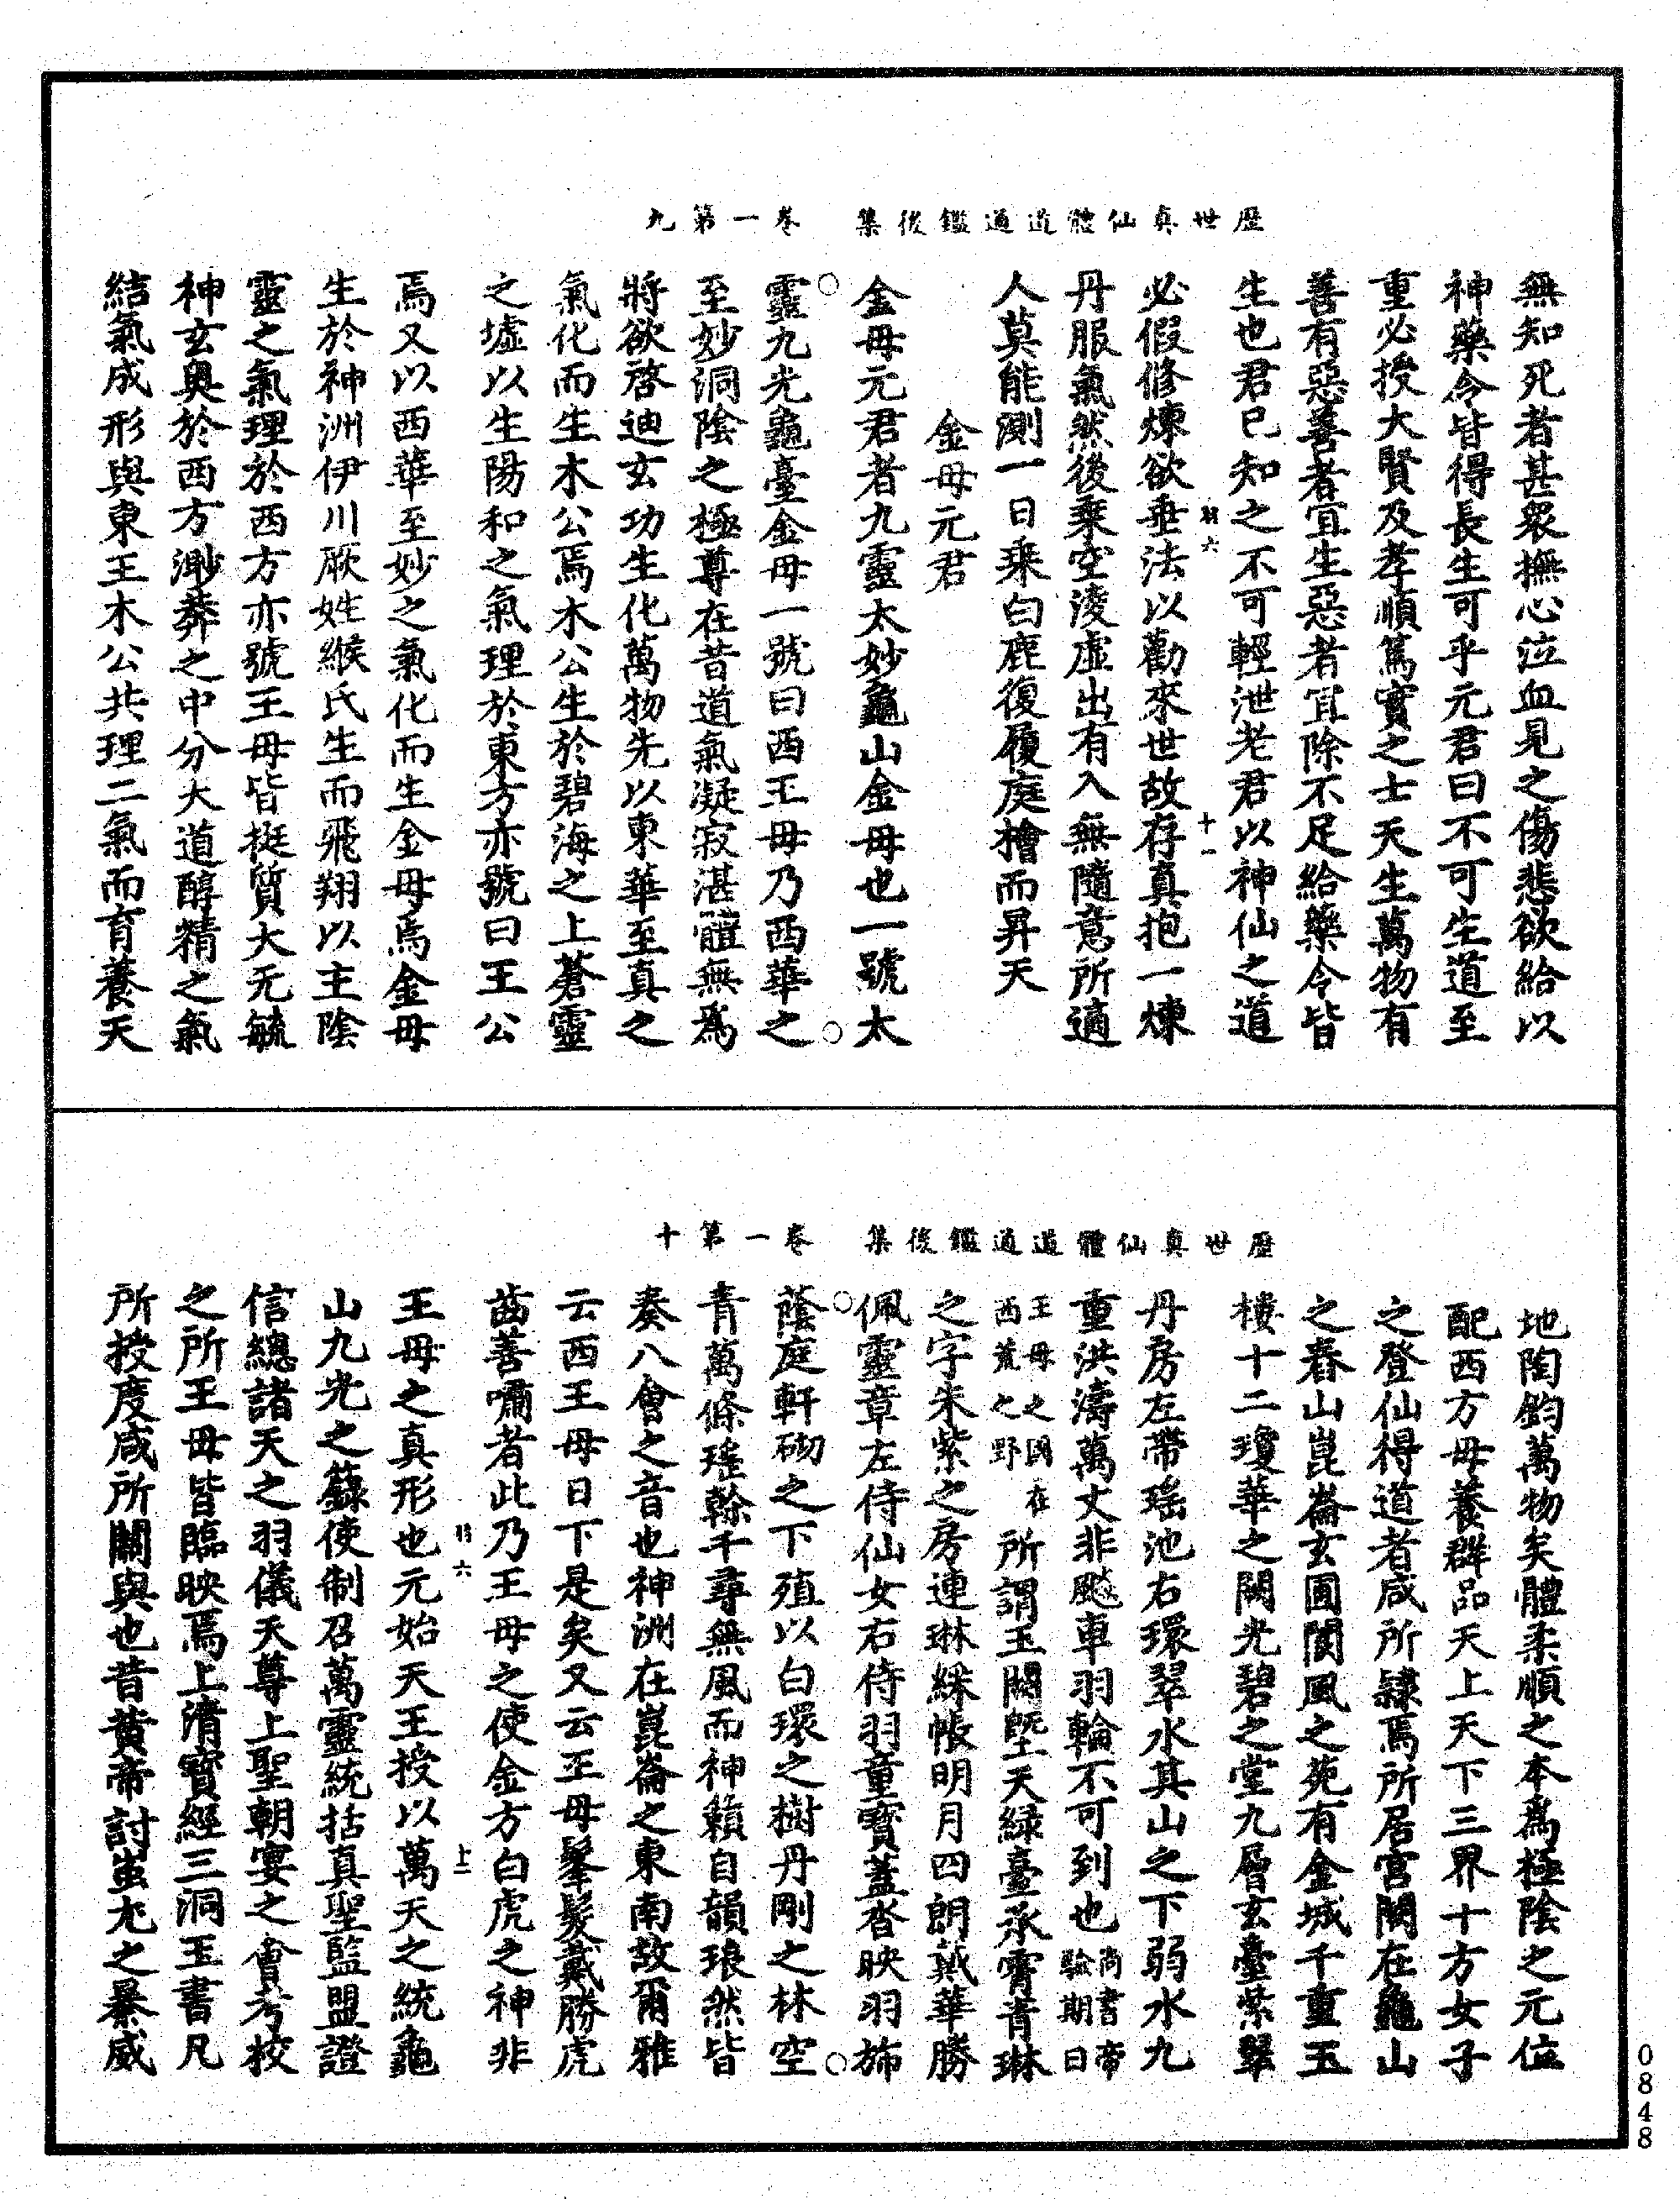 歷世真仙體道通鑑後集　卷一第九
無知死者甚衆撫心泣血見之傷悲欲給以
神藥令皆得長生可乎元君曰不可生道至
重必授大賢及孝順篤實之士天生萬物有
善有惡善者宜生惡者宜除不足給藥令皆
生也君已知之不可輕泄老君以神仙之道
羽六　十一
必假修煉欲垂法以勸來世故存真抱一煉
丹服氣然後乘空淩虛出有入無隨意所適
人莫能測一日乘白鹿復履庭檜而昇天
金母元君
金母元君者九靈太妙龜山金母也一號太
靈九光龜臺金母一號曰西王母乃西華之
至妙洞陰之極尊在昔道氣凝寂湛體無為
將欲啓迪玄功生化萬物先以東華至真之
氣化而生木公焉木公生於碧海之上蒼靈
之墟以生陽和之氣理於東方亦號曰王公
焉又以西華至妙之氣化而生金母焉金母
生於神洲伊川厥姓緱氏生而飛翔以主陰
靈之氣理於西方亦號王母皆挺質大无毓
神玄奧於西方渺莽之中分大道醇精之氣
結氣成形與東王木公共理二氣而育養天
歷世真仙體道通鑑後集　卷一第十
地陶鈞萬物矣體柔順之本為極陰之元位
配西方母養群品天上天下三界十方女子
之登仙得道者咸所隸焉所居宮闕在龜山
之春山崑崙玄圃閬風之苑有金城千重玉
樓十二瓊華之闕光碧之堂九層玄臺紫翠
丹房左帶瑤池右環翠水其山之下弱水九
重洪濤萬丈非飈車羽輪不可到也尚書帝驗期曰
王母之國在西荒之野所謂玉闕塈天綠臺承霄青琳
之字朱紫之房連琳綵帳明月四朗戴華勝
佩靈章左侍仙女右侍羽童寶蓋沓映羽斾
蔭庭軒砌之下殖以白環之樹丹剛之林空
青萬條瑤榦千尋無風而神籟自韻琅然皆
奏八會之音也神洲在崑崙之東南故爾雅
云西王母日下是矣又云王母髼髮戴勝虎
齒善嘯者此乃王母之使金方白虎之神非
羽六　十二
王母之真形也元始天王授以萬天之統龜
山九光之籙使制召萬靈統括真聖監盟證
信總諸天之羽儀天尊上聖朝宴之會考校
之所王母皆臨映焉上清寶經三洞玉書凡
所授度咸所關與也昔黃帝討蚩尤之暴威
0848